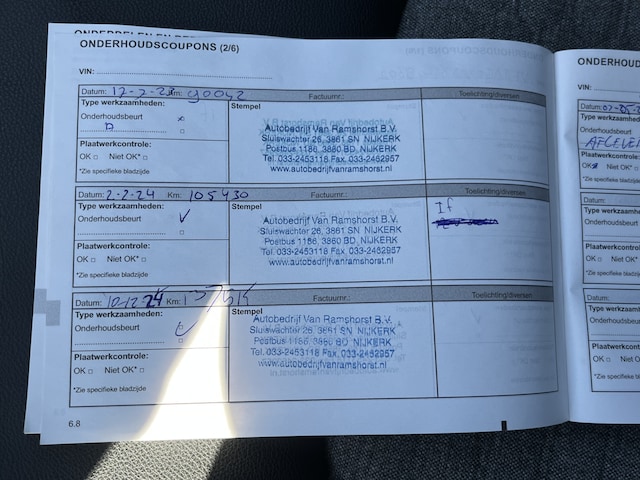 ONDERHOUDSCOUPONS (2/6)
VIN:
Datum: 12-7-23 Km: 90042 Factuurnr.: Toelichting/diversen
Type werkzaamheden:
Onderhoudsbeurt
Stempel
Autobedrijf Van Ramshorst B.V.
Sluiswachter 26, 3861 SN NIJKERK
Postbus 1186, 3860 BD, NIJKERK
Tel. 033-2453118 Fax. 033-2462957
www.autobedrijfvanramshorst.nl
Plaatwerkcontrole:
OK Niet OK*
*Zie specifieke bladzijde
Datum: 2-2-24 Km: 105430 Factuurnr.: Toelichting/diversen
Type werkzaamheden:
Onderhoudsbeurt
Stempel
Autobedrijf Van Ramshorst B.V.
Sluiswachter 26, 3861 SN NIJKERK
Postbus 1186, 3860 BD, NIJKERK
Tel. 033-2453118 Fax. 033-2462957
www.autobedrijfvanramshorst.nl
If
Plaatwerkcontrole:
OK Niet OK*
*Zie specifieke bladzijde
Datum: 10-12-24 Km: Factuurnr.: Toelichting/diversen
Type werkzaamheden:
Onderhoudsbeurt
Stempel
Autobedrijf Van Ramshorst B.V.
Sluiswachter 26, 3861 SN NIJKERK
Postbus 1186, 3860 BD, NIJKERK
Tel. 033-2453118 Fax. 033-2462957
www.autobedrijfvanramshorst.nl
Plaatwerkcontrole:
OK Niet OK*
*Zie specifieke bladzijde
6.8
ONDERHOUD
VIN:
Datum:
Type werkzaam
Onderhoudsbeurt
AFGELEVE
Plaatwerkcontrole:
OK Niet OK
*Zie specifieke blad
Datum:
Type werkzaamh
Onderhoudsbeurt
Plaatwerkcontro
OK Niet OK
*Zie specifieke bla
Datum:
Type werkzaam
Onderhoudsbeu
Plaatwerkcont
OK Niet O
*Zie specifieke b